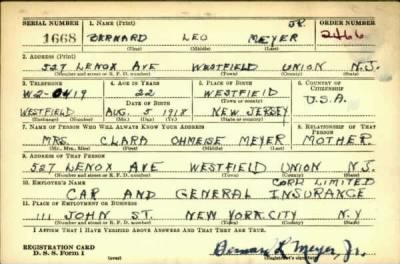 SERIAL NUMBER 1. NAME (Print) ORDER NUMBER
1668 BERNARD LEO MEYER JR. 2466
(First) (Middle) (Last)
2. ADDRESS (Print)
527 LENOX AVE WESTFIELD UNION N.J.
(Number and street or R. F. D. number) (Town) (County) (State)
3. TELEPHONE 4. AGE IN YEARS 5. PLACE OF BIRTH 6. COUNTRY OF CITIZENSHIP
W2-0419 22 WESTFIELD
(Town or county)
DATE OF BIRTH U.S.A.
WESTFIELD AUG. 5 1918 NEW JERSEY
(Exchange) (Number) (Mo.) (Day) (Yr.) (State or country)
7. NAME OF PERSON WHO WILL ALWAYS KNOW YOUR ADDRESS 8. RELATIONSHIP OF THAT PERSON
MRS. CLARA OHMEISE MEYER MOTHER.
(Mr., Mrs., Miss) (First) (Middle) (Last)
9. ADDRESS OF THAT PERSON
527 LENOX AVE WESTFIELD UNION N.J.
(Number and street or R. F. D. number) (Town) (County) (State)
10. EMPLOYER'S NAME CORP LIMITED
CAR AND GENERAL INSURANCE
11. PLACE OF EMPLOYMENT OR BUSINESS
111 JOHN ST. NEW YORK CITY N.Y
(Number and street or R. F. D. number) (Town) (County) (State)
I AFFIRM THAT I HAVE VERIFIED ABOVE ANSWERS AND THAT THEY ARE TRUE.
REGISTRATION CARD
D. S. S. Form 1 Bernard L Meyer Jr.
(Registrant's signature)